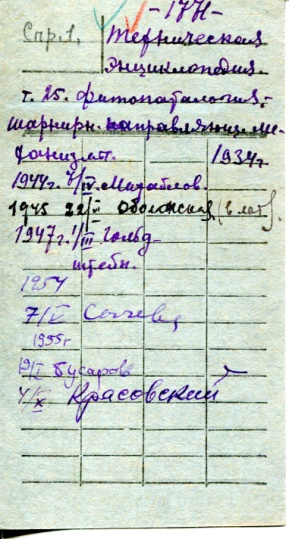 -1771-
Спр.1. Техническая
энциклопедия.
т. 25. фитопатология-
шарнирн. направляющие ме-
ханизмы. 1934г
1944г 7/IV. Михайлов.
1945 22/V Оболонская (в лат).
1947г. 1/III Гольд-
штейн.
1954
7/V
1955г
19/I Бусаров
4/X Красовский